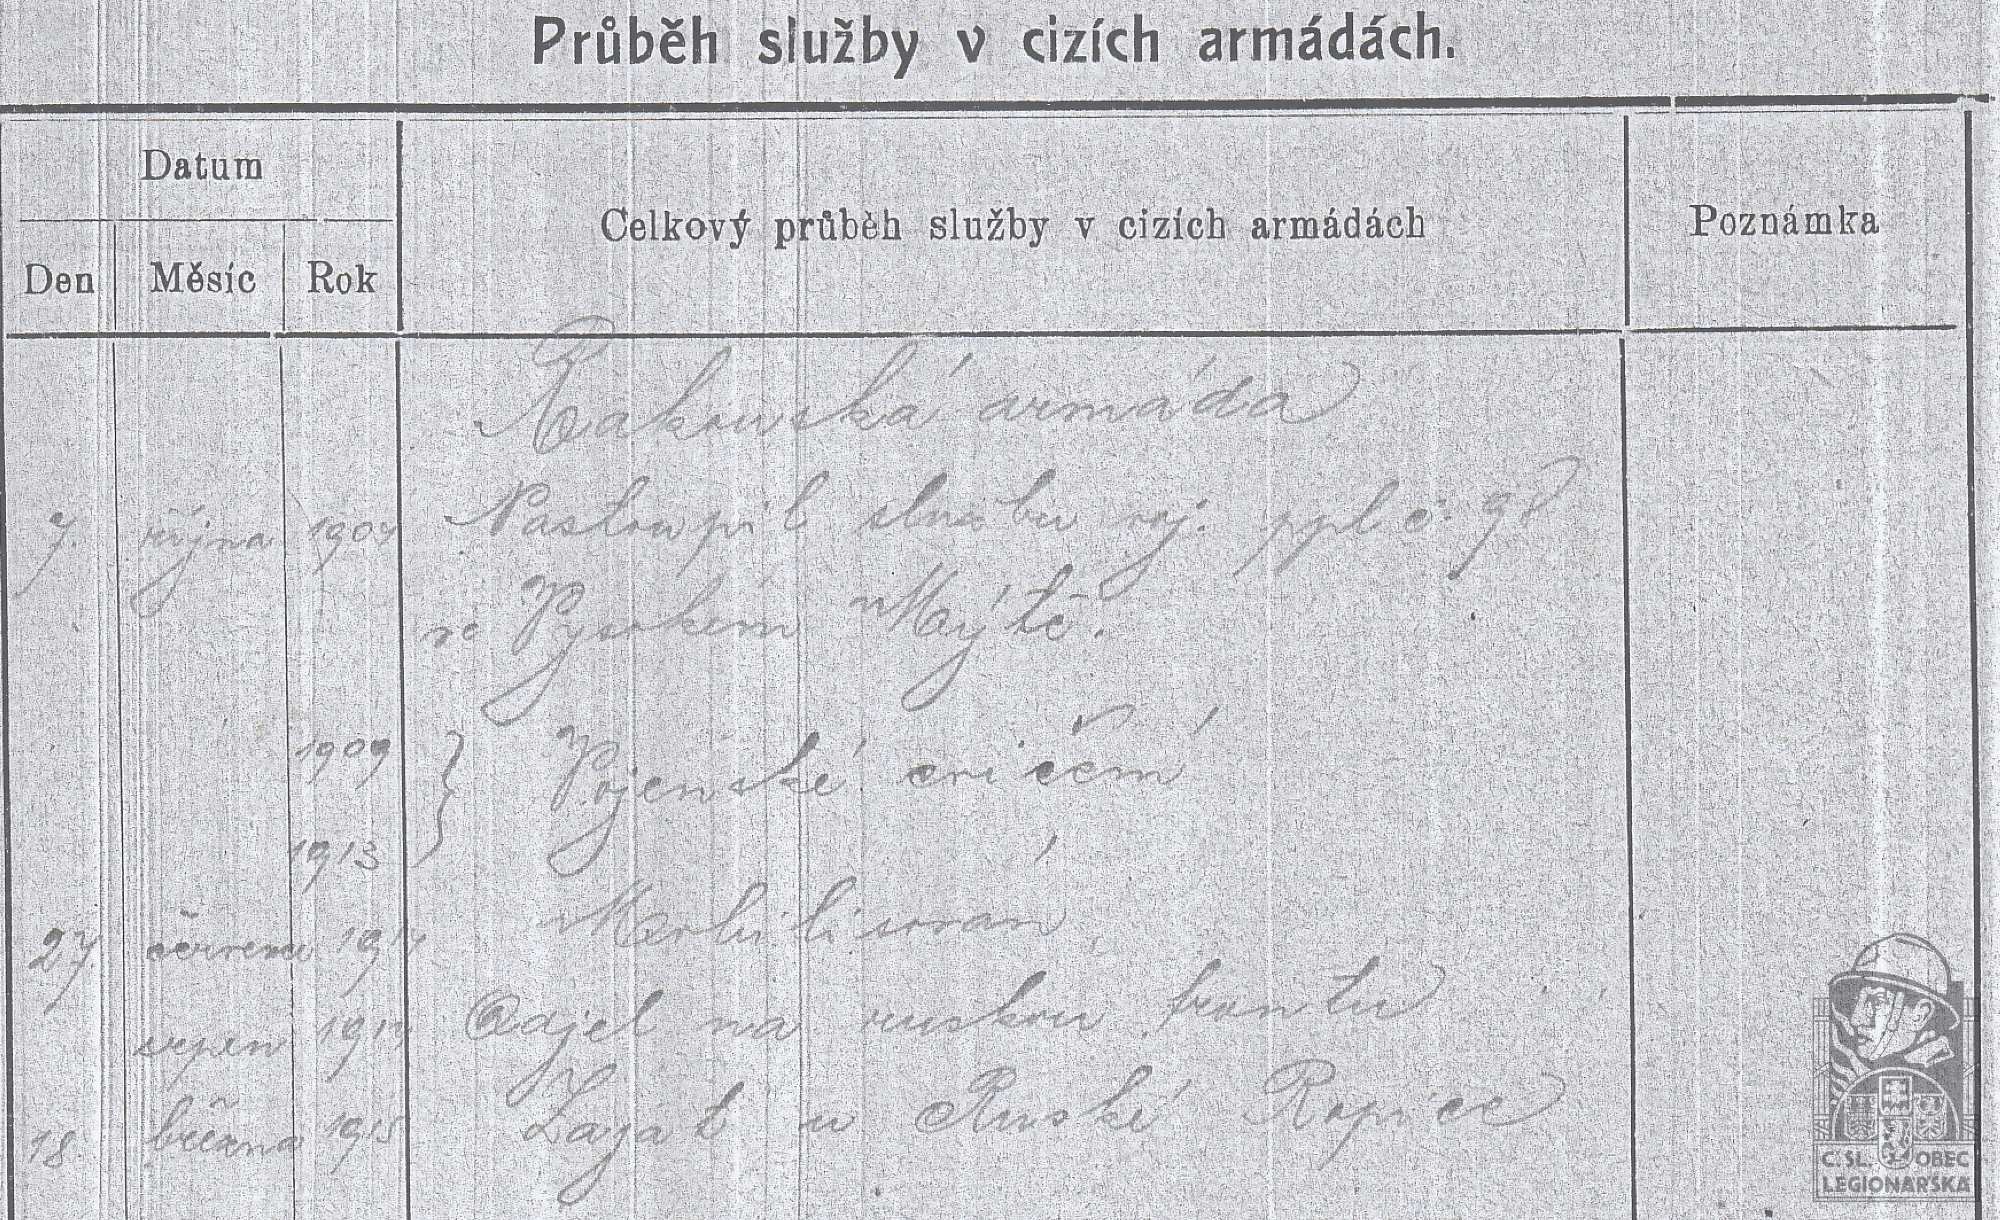 Průběh služby v cizích armádách.
Datum
Celkový průběh služby v cizích armádách
Poznámka
Den Měsíc Rok
Rakouská armáda
7. října Nastoupil službu voj. ppl č. 98
ve Vysokém Mýtě.
1909 Vojenské cvičení
1913
27. červenec 1914 Mobilisován
srpen 1914 Odjel na ruskou frontu
18. března 1915 Zajat u Ruské Ropice
Č. SL. OBEC
LEGIONÁŘSKÁ